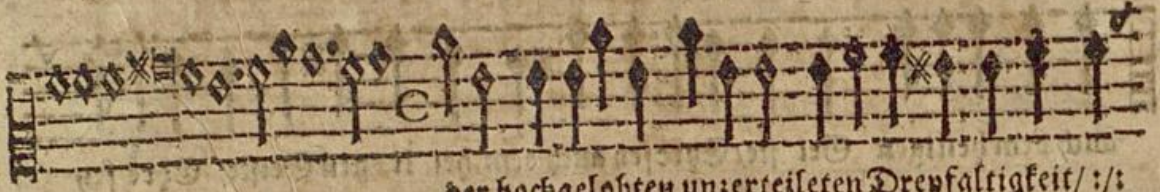 der hochgelobten unzerteileten Dreyfaltigkeit/ :/: